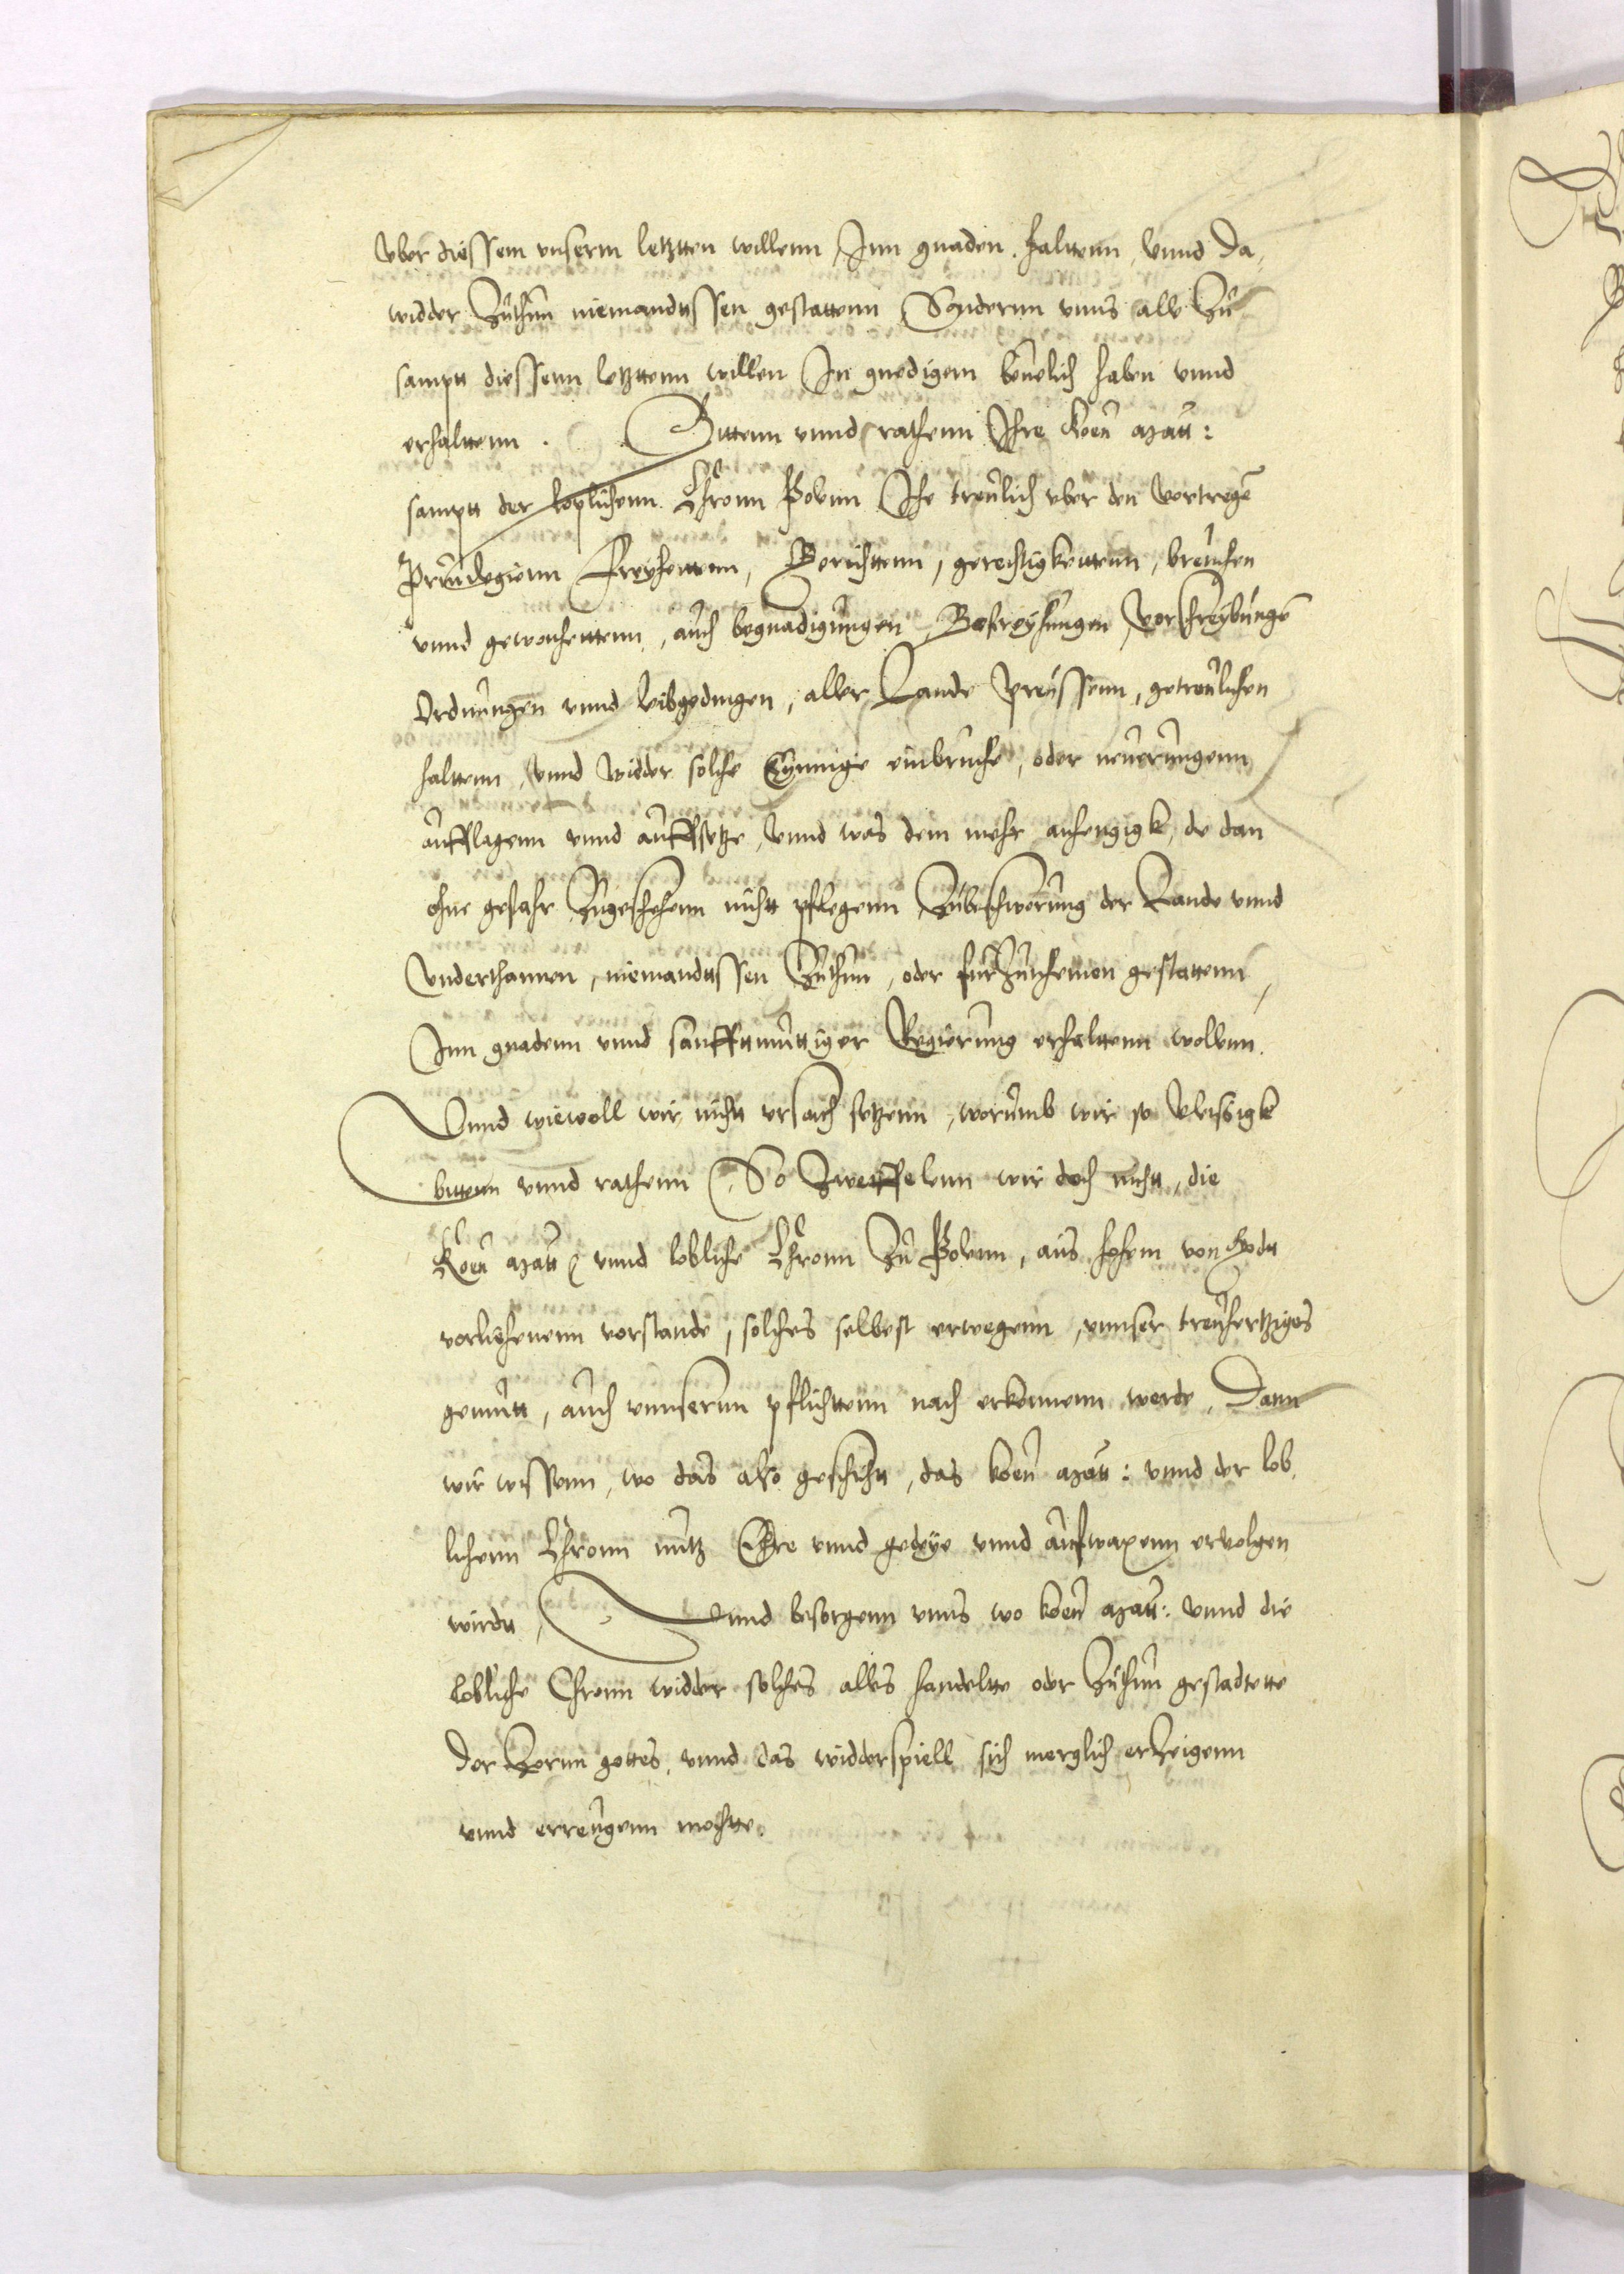 uber diessem unserm letztten willenn Inn gnaden halttenn, Unnd da,
widder Zuthun niemandtssen gestattenn Sonderrnn unns alle Zu
samptt diessenn letzttenn willen In gnedigem bevelich haben unnd
erhalttenn. Bittenn unnd rathenn Ihre Koen Matt:
samptt der loplichenn Chronn Polenn Ihe treulich uber den vortregen
Privilegienn Freyhettenn, Gerichttenn, gerechtigkeittenn, breuchen
unnd gewonheittenn, auch begnadigungen, Befreyhungen, vorschreybungen
Ordnungen unnd leibgedingen, aller Lande Preussenn, getreulichen
halttenn, Unnd widder solche Eynnige einbruche, oder neuerungenn
aufflagenn unnd auffsetze, Unnd was dem mehr anhengigk, de dan
ohne gefahr Zugeschehenn nichtt pflegenn Zubeschwerung der Lande unnd
Underthannen, niemandtssen Zuthun, oder furzunhemen gestattenn,
Inn gnadenn unnd sanfftmuttiger Regierung erhalttenn wollenn.
Unnd wiewoll wir nichtt ursach setzenn, worumb wir so vleissigk
bittenn unnd rathenn So Zweiffelenn wir doch nichtt, die
Koen Matt unnd lobliche Chronn Zu Polenn, aus hohem von Godtt
vorliehenenn vorstande, solches selbest erwegenn, unnser treuhertziges
gemutt, auch unnserenn pflichttenn nach erkennenn werde, Dann
wir wissenn, wo das also geschichtt, das Koen Matt: unnd der lob,
lichenn Chronn nutz Ehre unnd gedeye unnd aufwaxenn ervolgen
wirdtt, Unnd besorgenn unns wo Koen Matt: unnd die
lobliche Chronn widder solches alles handeltte oder Zuthun gestadtette
der Zornn gottes, unnd das widderspiell sich merglich erzeigenn
unnd erreugenn mochtte.